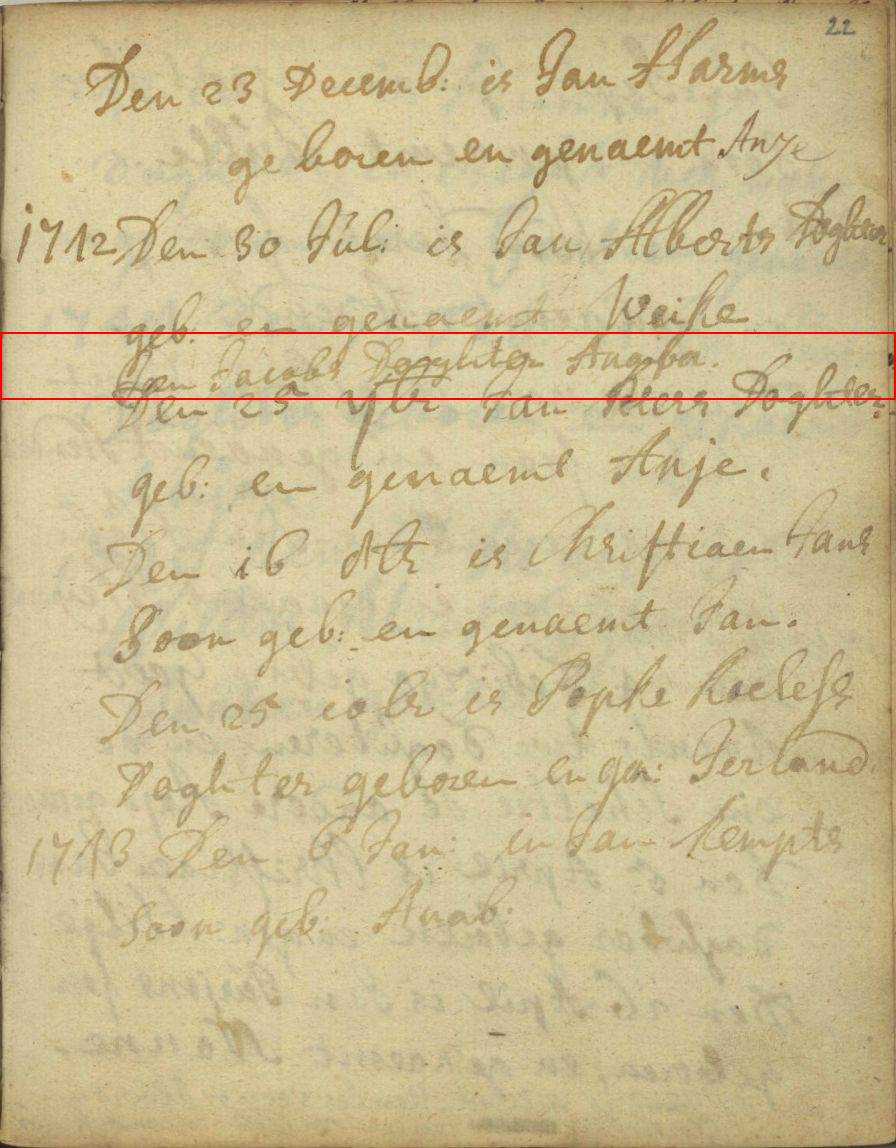 22
Den 23 Decemb: is Jan Harms
geboren en genaemt Anje
1712 Den 30 Jul: is Jan Alberts Doghter
geb: en genaemt Weike
Jan Jacobs Doghter
Den 25 7br Jan Piers Doghter
geb: en genaemt Anje.
Den 16 is Christiaen Jans
Soon geb: en genaemt Jan.
Den 25 10br is Popke Roelefs
Doghter geboren en gen: Jerland.
1713 Den 6 Jan: is Jan Kempts
Soon geb.